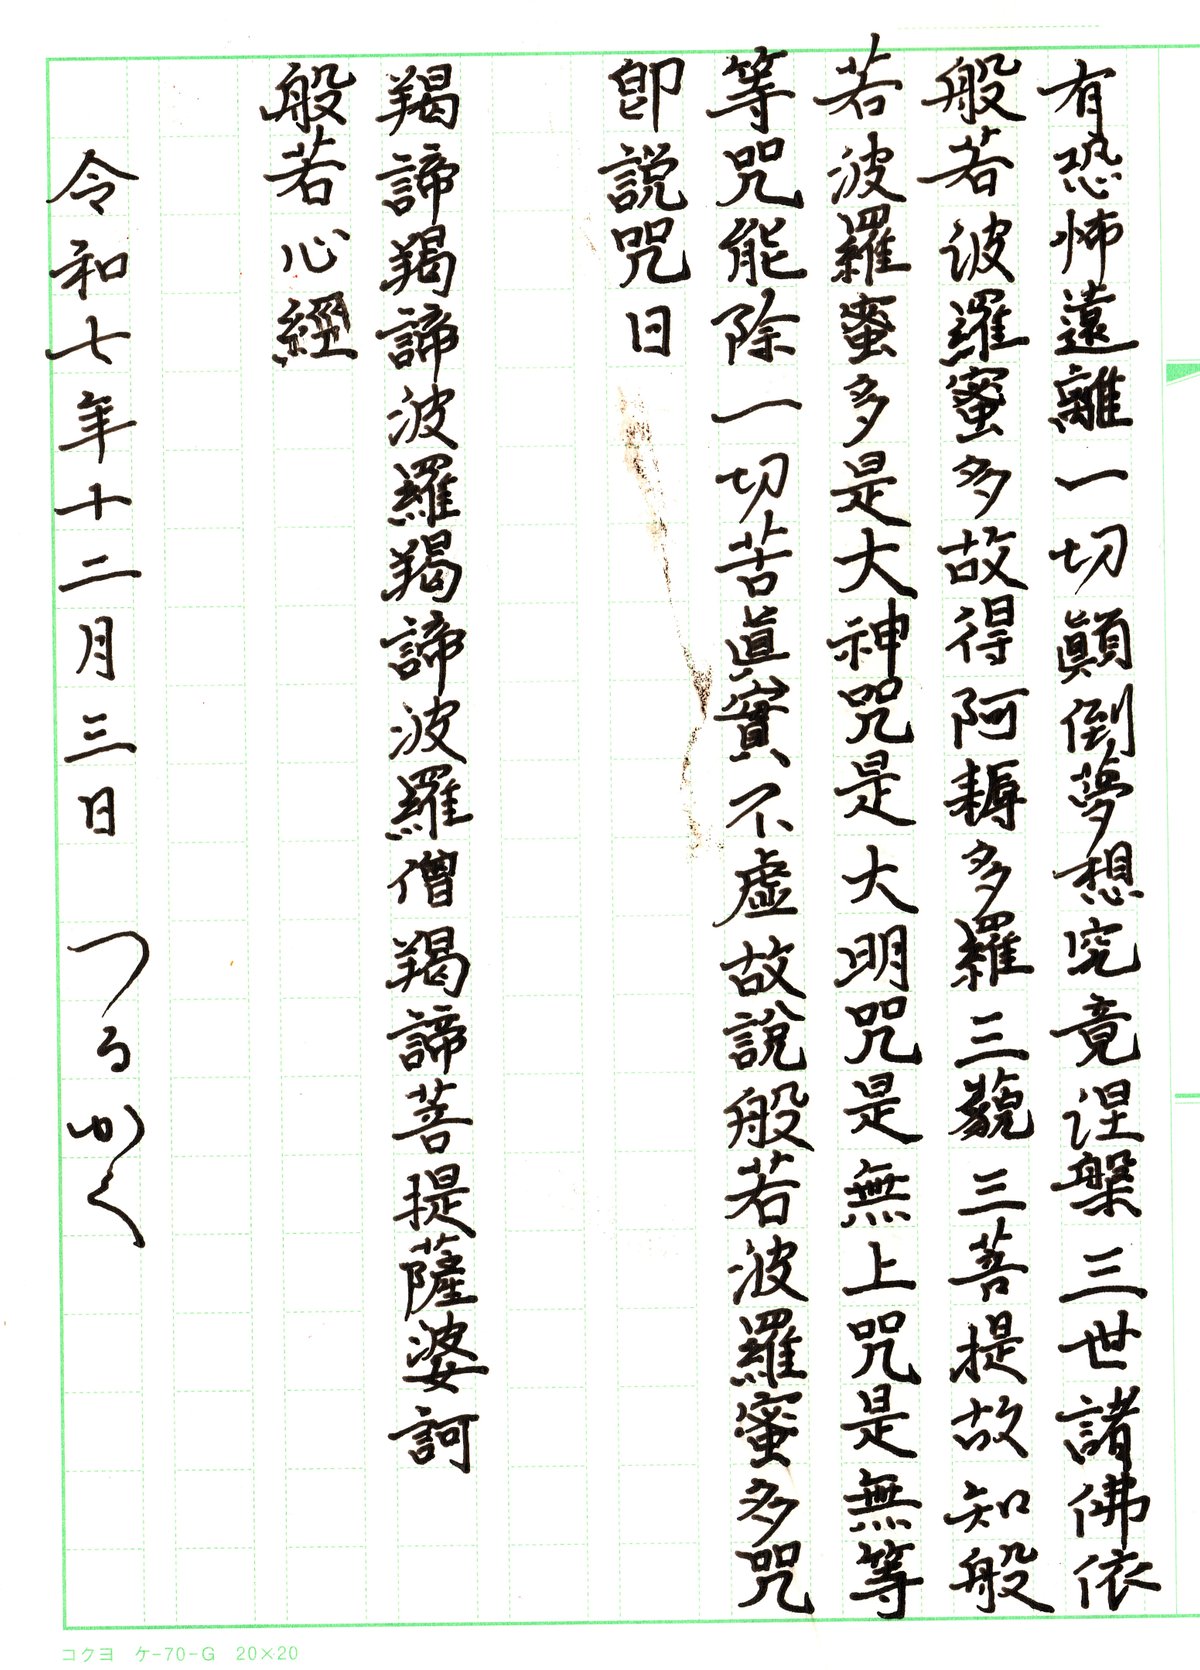 有恐怖遠離一切顚倒夢想究竟涅槃三世諸佛依
般若波羅蜜多故得阿耨多羅三藐三菩提故知般
若波羅蜜多是大神咒是大明咒是無上咒是無等
等咒能除一切苦眞實不虛故說般若波羅蜜多咒
卽說咒曰
羯諦羯諦波羅羯諦波羅僧羯諦菩提薩婆訶
般若心經
令和七年十二月三日 つるかく
コクヨ ケ-70-G 20×20